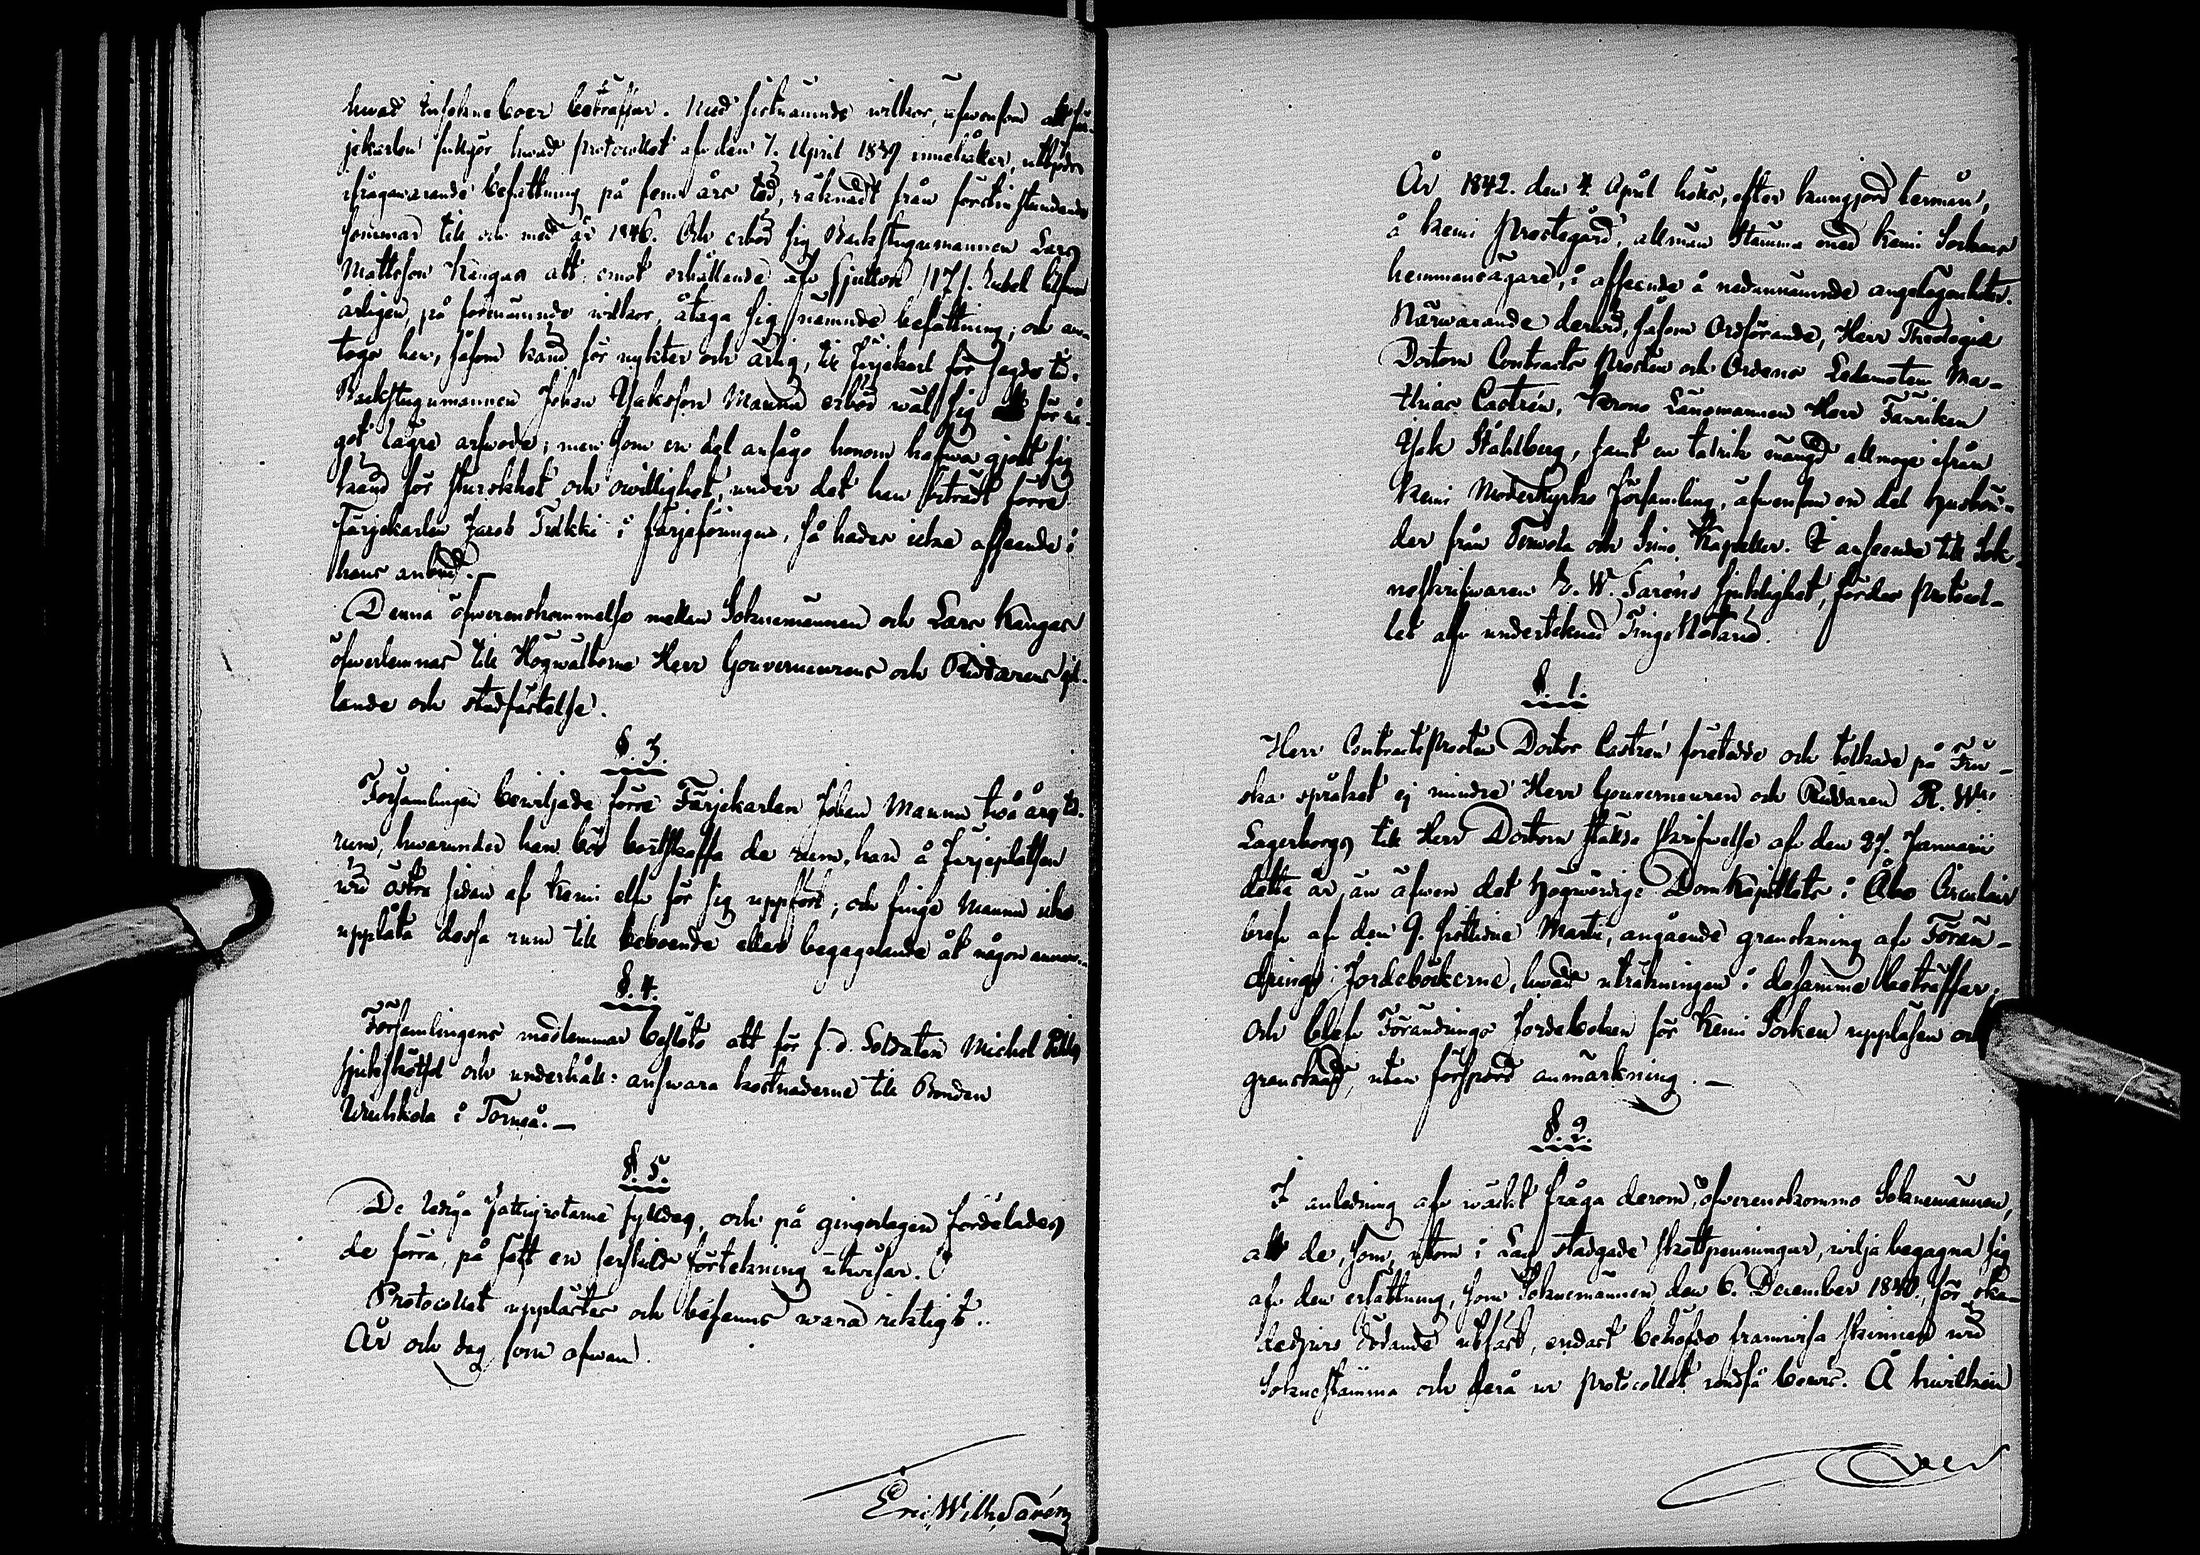 hwad Insokneboer beträffar. Med sistnämnde wilkor, äfwensom att fär-
jekarlen fullgör hwad protocollet af den 7. April 1839 innehåller, utbjöds
ifrågawarande befattning på fem års tid, räknadt från förstinstundande
sommar till och med år 1846. Och erböd sig Backstugumannen Lars
Mattsson Kangas att, emot erhållande af Sjutton /17/. Rubel Silfwer
årligen, på förenämnde wilkor, åtaga sig nämnde befattning; och an-
togs han, såsom känd för nykter och ärlig, till Färjekarl för sagde tid.
Backstugumannen Johan Jakosson Maunu erböd wäl sig för nå-
got lägre arfwode; men som en del ansågo honom hafwa gjort sig
känd för sturskhet och owillighet, under det han biträdt förre
Färjekarlen Jacob Tulkki i färjeföringen, så hades icke afseende å
hans anbud.—
Denna öfwerenskommelse mellan Soknemännen och Lars Kangas
öfwerlemnas till Högwälborne Herr Gouverneurens och Riddarens gil-
lande och stadfästelse.
§. 3.
Församlingen bewiljade förre Färjekarlen Johan Maunu twå års tid.
rum, hwarunder han bör bortskaffa de rum, han å Färjeplatsen
wid östra sidan af Kemi elf för sig uppfört; och finge Maunu icke
upplåta dessa rum till beboende eller begagnande åt någon annan.
§. 4.
Församlingens medlemmar beslöto att för f. d. Soldaten Michel
sjukskötsel och underhåll answara kostnaderne till Bonden
i Torneå.—
§. 5.
De lediga Fattigrotarne fylldes, och på gingerlagen fördelades
de förra, på sätt en serskild förtekning utwisar.
Protocollet upplästes och befanns wara riktigt.
År och dag som ofwan.
Eric Wilh. Sarén
År 1842. den 4. April hölts, efter kungjord termin,
å Kemi Prostegård, allmän Stämma med Kemi Sockens
hemmansägare, i afseende å nedannämnde angelägenheter.
Närwarande derwid, såsom Ordförande, Herr Theologiæ
Doctorn Contracts Prosten och Ordens Ledamoten Ma-
thias Castrén, Krono Länsmannen Herr Fänriken
Isak Ståhlberg, samt en talrik mängd allmoge ifrån
Kemi Moderkyrko Församling, äfwensom en del Husbön-
der från Terwola och Simo Kapeller. I anseende till Sok-
neskrifwaren E. W. Saréns sjuklighet, fördes Protocol-
let af undertecknad Tinge Notarie.
§. 1.
Herr Contracts Prosten Doctor Castrén företedde och tolkade på Fin-
ska språket ej mindre Herr Gouverneuren och Riddaren R. W.
Lagerborgs till Herr Doctorn stälda skrifwelse af den 27. Januarii
detta år, än äfwen det Högwördige DomKapitlets i Åbo Circulair
bref af den 9. sistledne Martii, angående granskning af Förän-
drings Jordeböckerne, hwad uträkningen i desamma beträffar;
Och blef Förändrings Jordeboken för Kemi Socken uppläsen och
granskad, utan försport anmärkning.—
§. 2.
I anledning af wäckt fråga derom, öfwerenskommo Soknemännen,
att de, som, utom i Lag stadgade skottpenningar, wilja begagna sig
af den ersättning, som Soknemännen den 6. December 1840, för ska-
dedjurs dödande utfäst, endast behöfde framwisa skinnen wid
Soknestämma och derå ur protocollet undfå bewis. Å hwilken